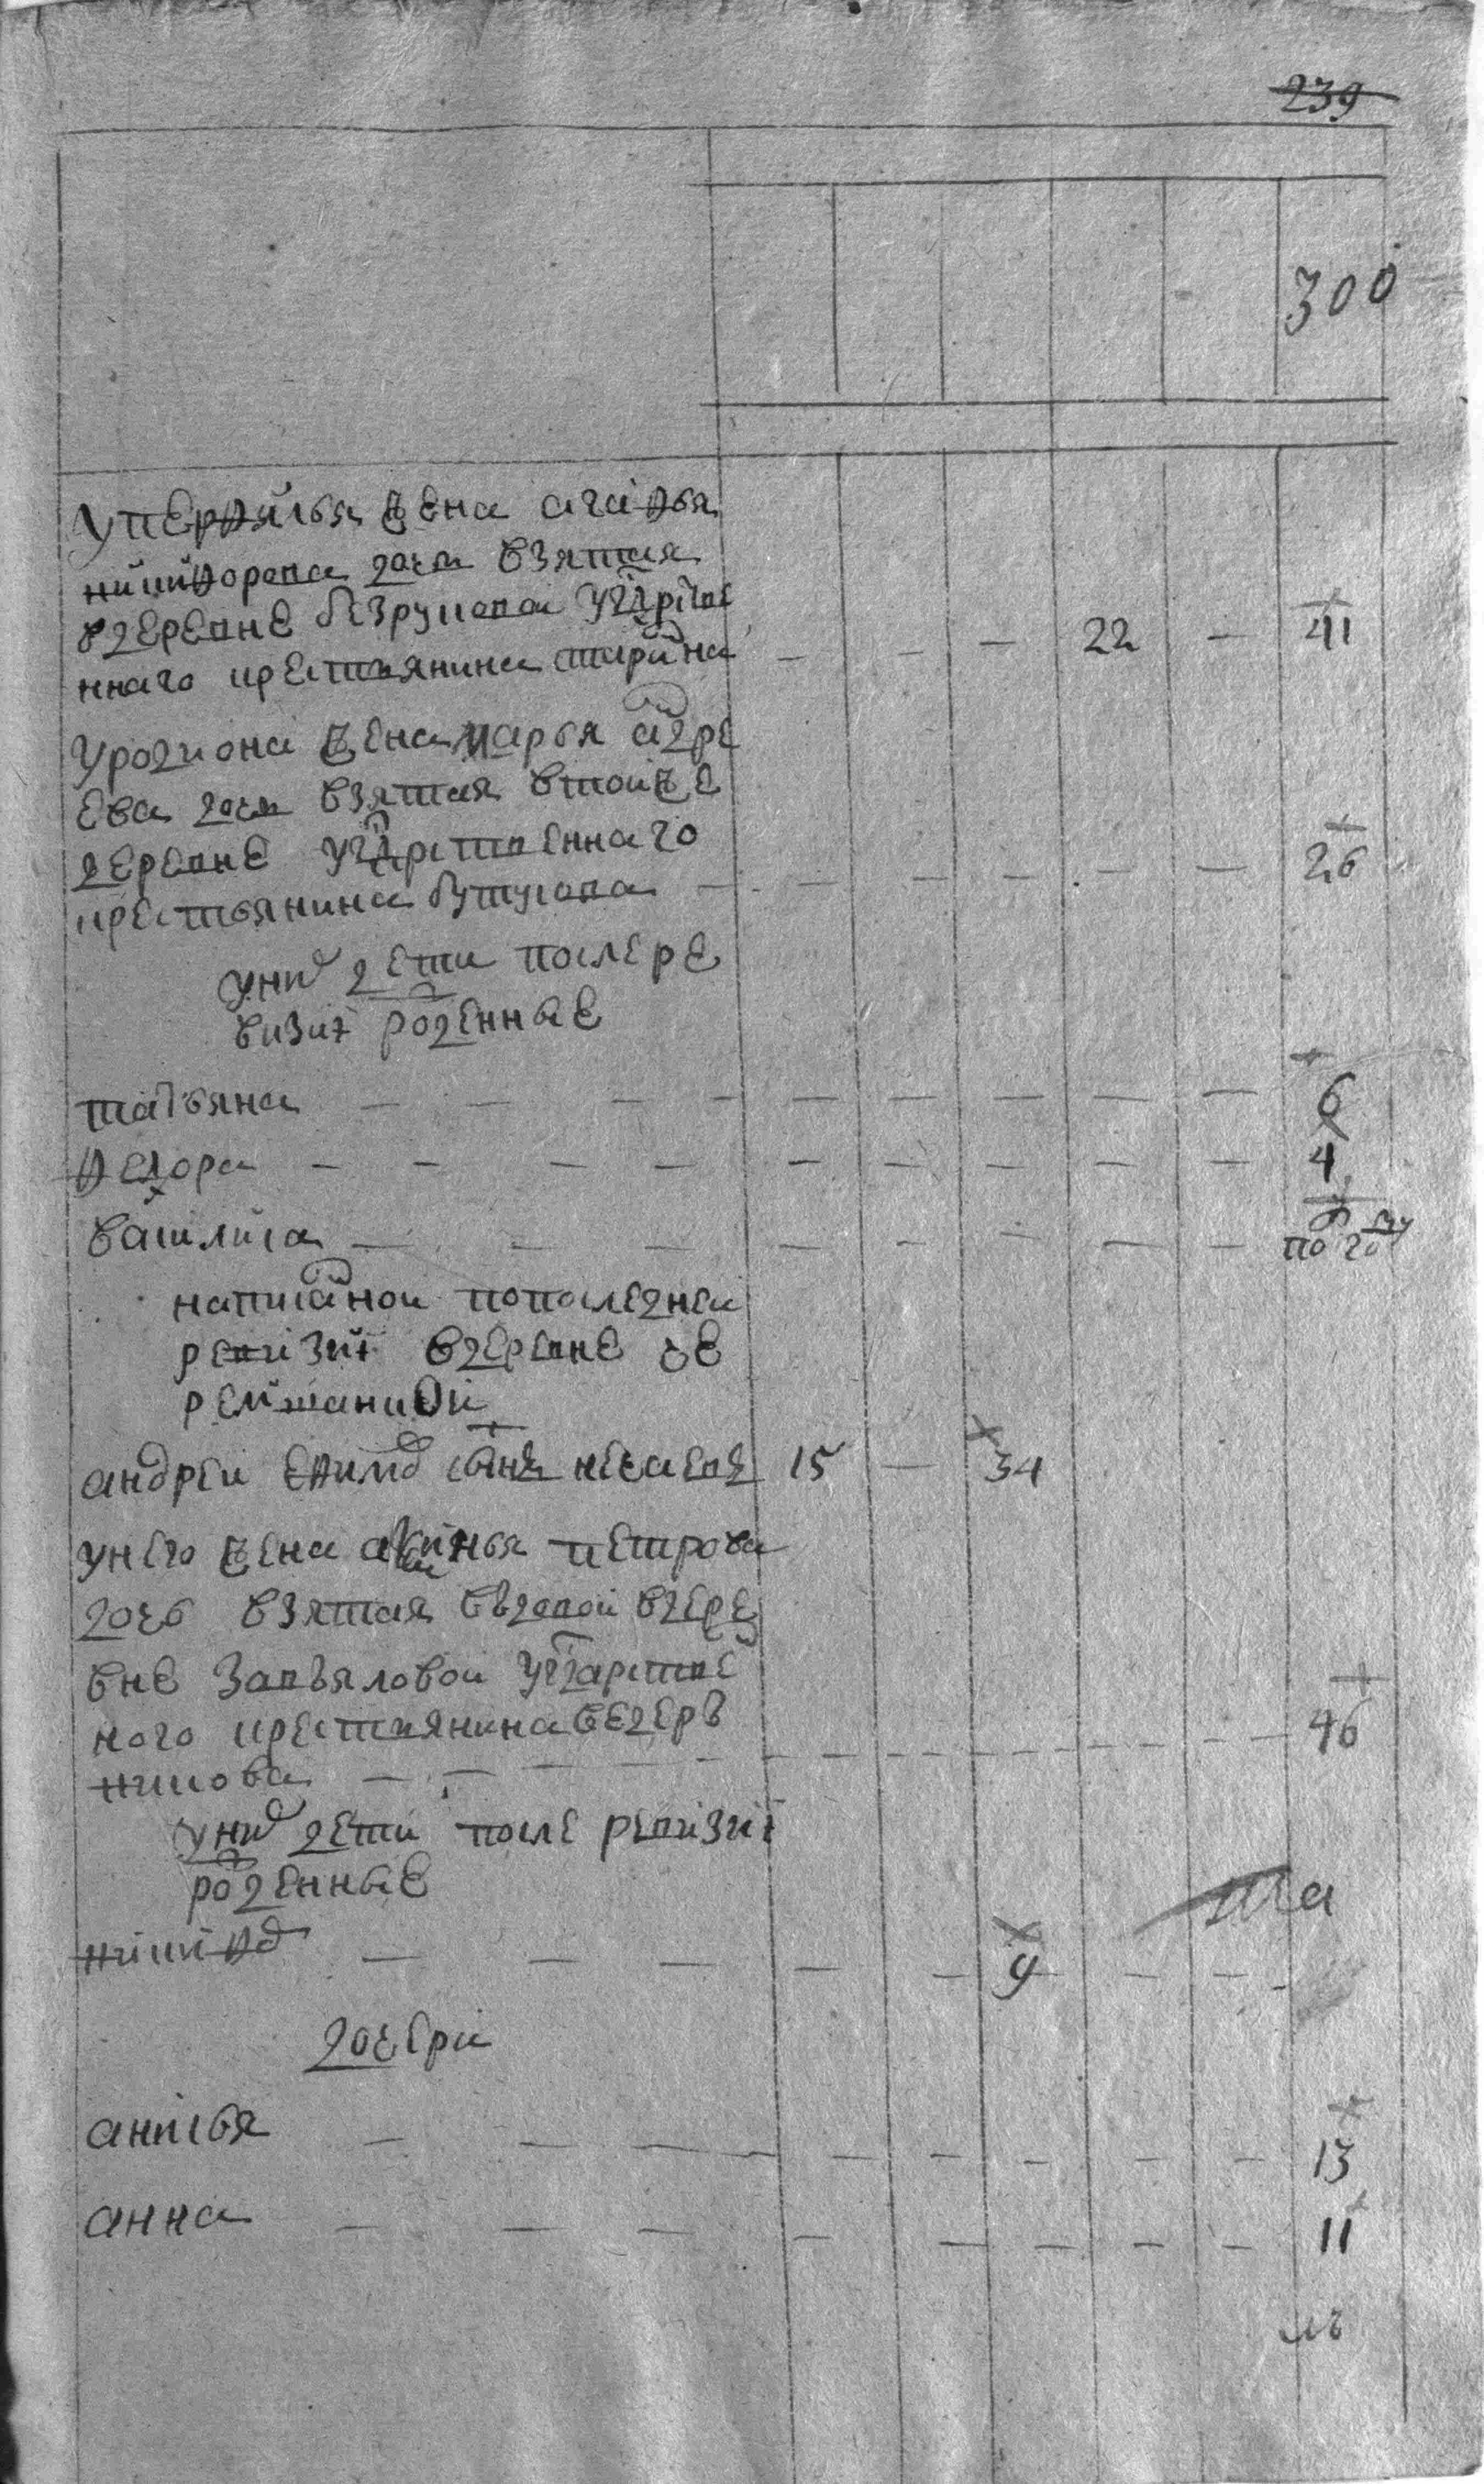 239
300
уперфилья жена агафья
никифорова дочь взятая
вдеревне безруковои угдрстве
ннаго крестьянина старинна - - - 22 - 41
уродиона жена марья андре
ева дочь взятая втоиже
деревне угдрственнаго
крестьянина бутусова - - - - - - 26
уних дети послере
визии рожденные
татьяна - - - - - - - - - 6
федора - - - - - - - - - 4
василиса - - - - - - - - по году
написанной попоследнеи
ревизии вдеревне че
ремшанкои
андреи ефимов сынъ исаевъ 15 - 34
унего жена аксинья петрова
дочь взятая вдовои вдере
вне завьяловои угдарстве
ного крестьянина ведер
никова - - - - - - - - 46
уних дети после ревизии
рожденные
никифор - - - - - 9 - - -
дочери
анисья - - - - - - - - 13
анна - - - - - - - - 11